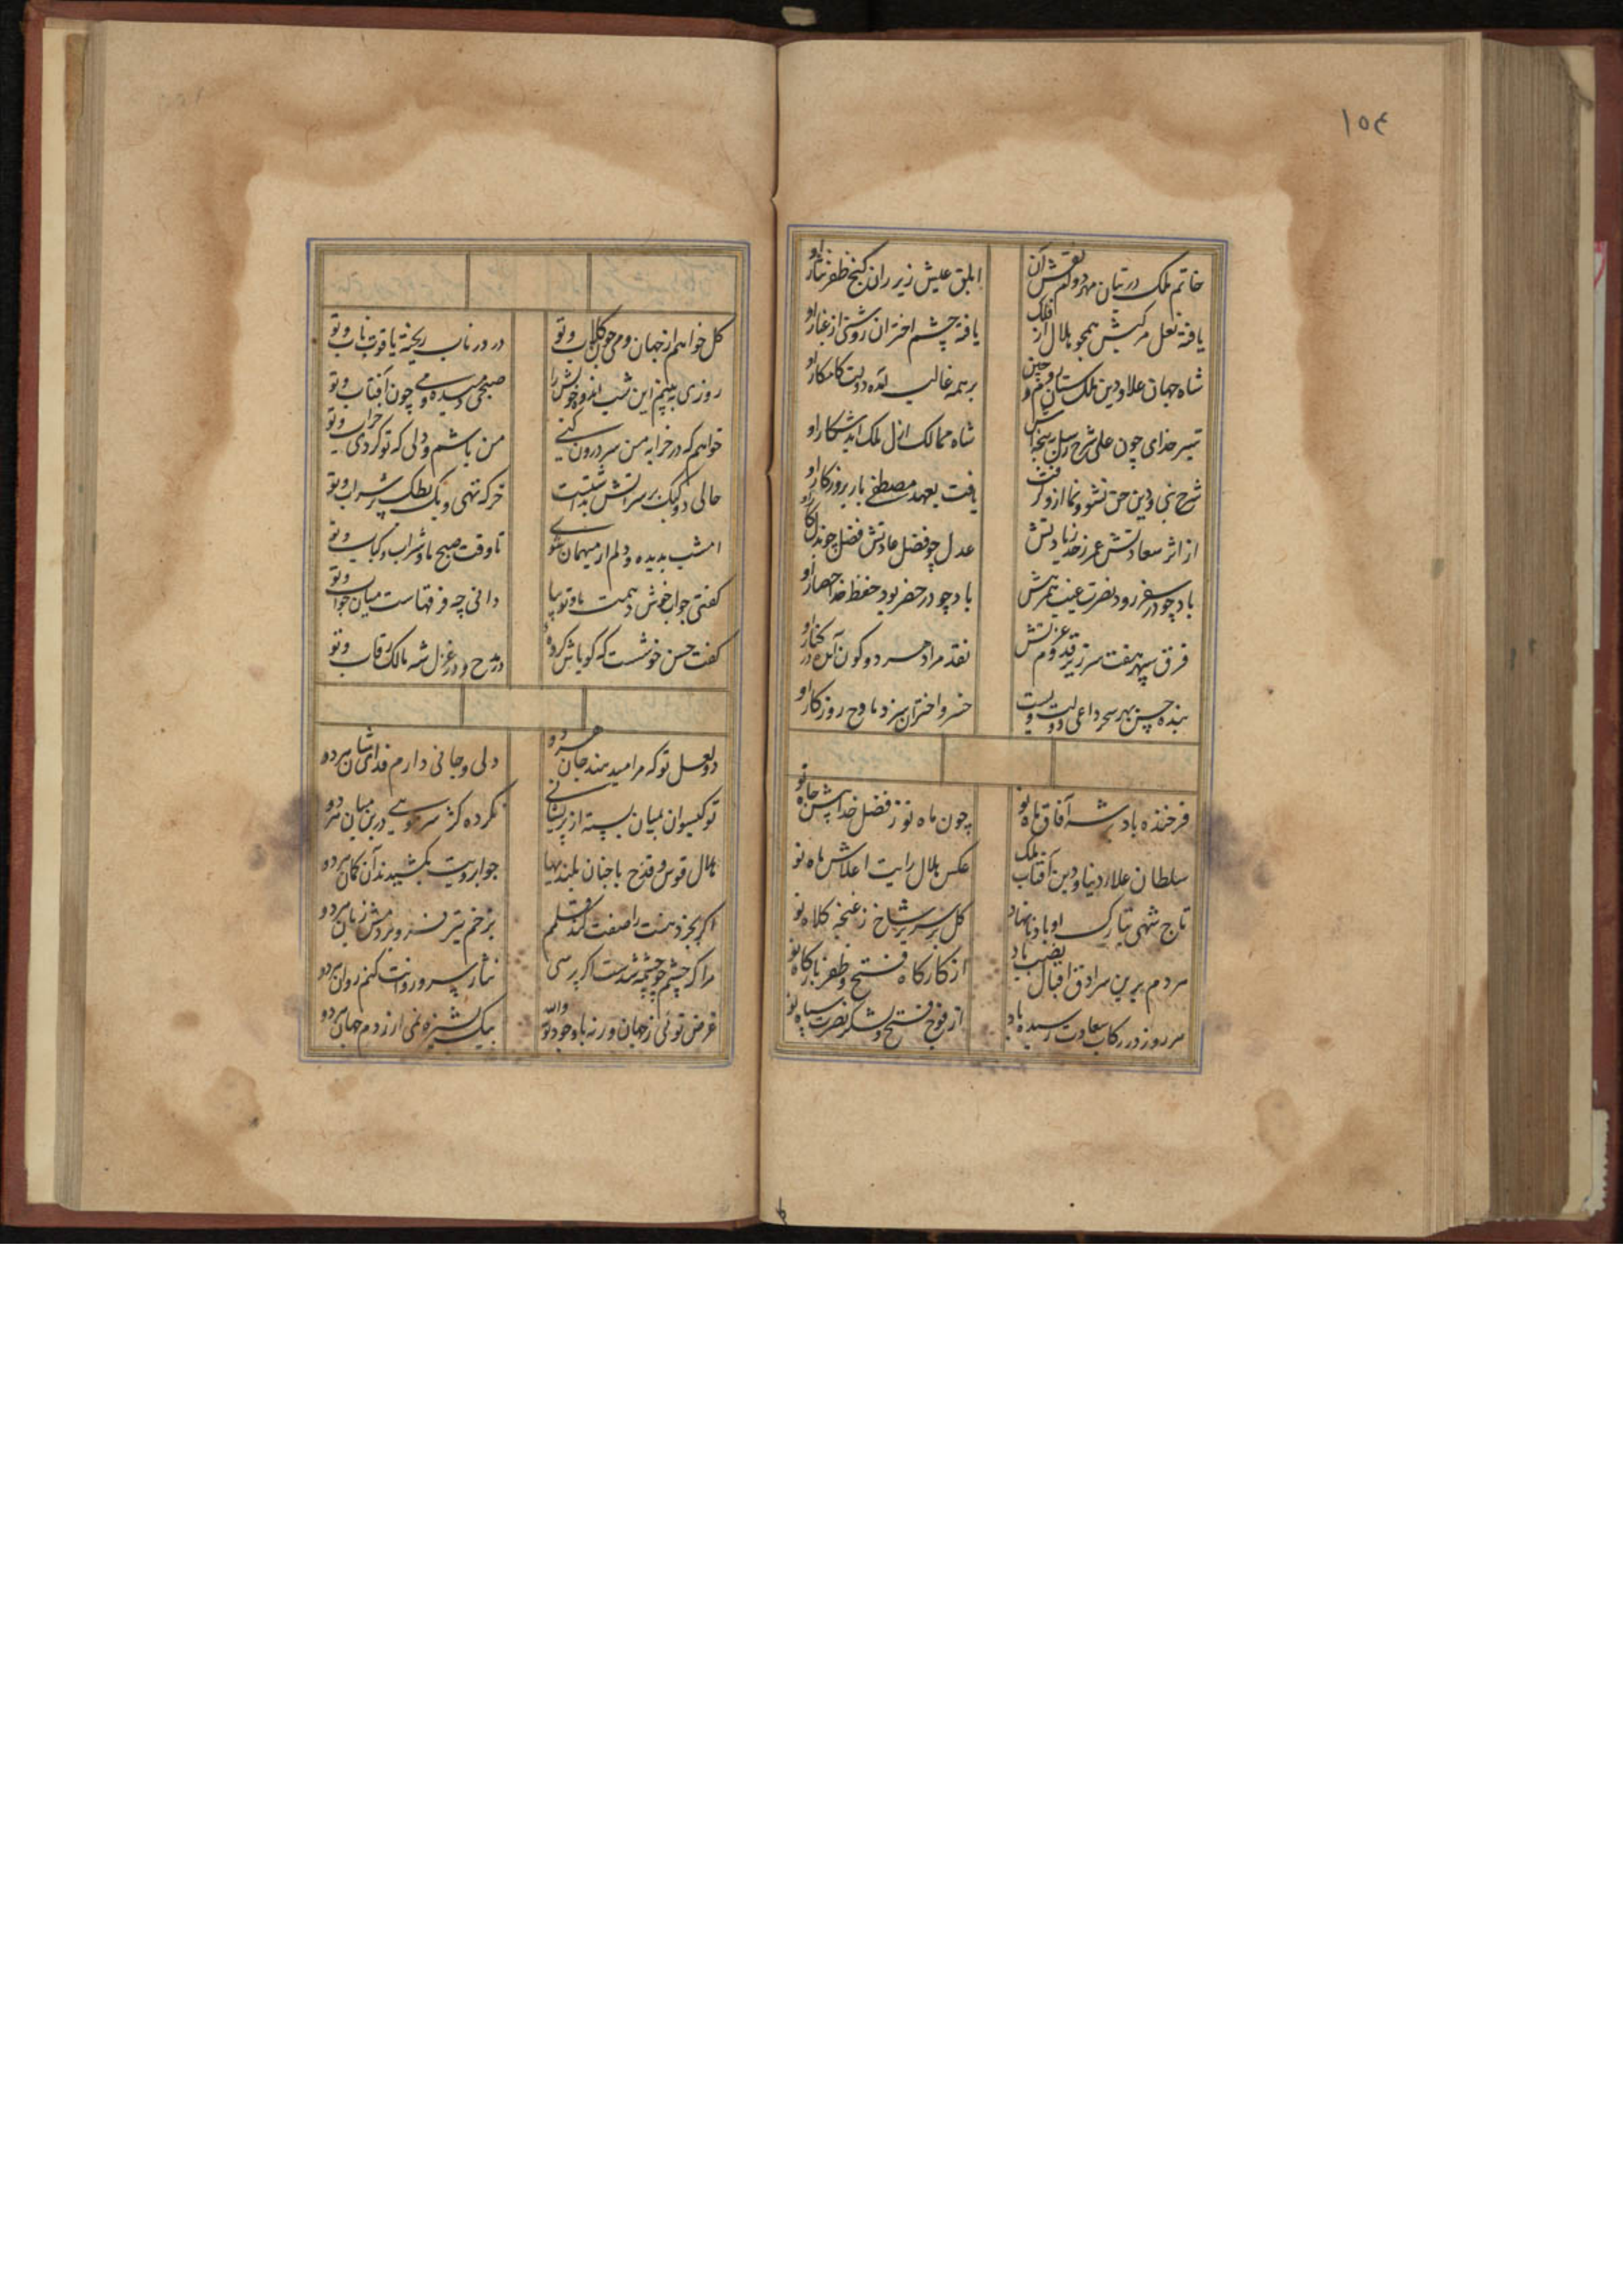 ١٥٤
خاتم ملک در بنان مهر دوام نقش آن
ابلق عیش زیر ران گنج ظفر نثار او
یافته نعل مرکبش همچو هلال از فلک
یافته چشم اختران روشنی از غبار او
شاه جهان علاء دین ملک ستان روم و چین
بر همه غالب آمده دولت کامکار او
شیر خدای چون علی شرح رسل پنجه اش
شاه ممالک ازل ملک ابد شکار او
شرح نبی و دین حق نشو و نما ازو گرفت
یافت بعهد مصطفی بار بروزکار او
از اثر سعادتش عمر ز حد زیادتش
عدل چو فضل عادتش فضل چو بذل کار او
باد چو در سفر رود نصرت غیب همرهش
باد چو در حضر بود حفظ خدا حصار او
فرق سپهر هفت سر زیر قدوم عزتش
نقد مراد هر دو کون آمده در کنار او
بنده حسن بهر سحر داعی دولت ویست
خسرو اختران سزد مادح روزکار او
فرخنده باد بر شه آفاق ماه نو
چون ماه نو ز فضل خدا پیش جاه نو
سلطان علاء دنیا و دین آفتاب ملک
عکس هلال رایت اعلاش ماه نو
تاج شهی تبارک او باد تا نهاد
گل بر سریر شاخ ز غنچه کلاه نو
هر دم برین سرادق اقبال نصب باد
از کارگاه فتح و ظفر بارگاه نو
هر روز در رکاب سعادت رسیده باد
از فوج فتح و لشکر نصرت سپاه نو
گل خواهم از جهان و می چون گلاب و تو
در در ناب ریخته یاقوت ناب و تو
روزی ببینم این شب اندوه خویش را
صبحی دمیده و می چون آفتاب و تو
خواهم که در خرابه من سر درون کنی
من باشم و دلی که تو کردی خراب و تو
حالی دو کبک بر سر آتش نشسته است
خرگه تهی و یک بطک پر شراب و تو
امشب بدیده و دلم ار میهمان شوی
تا وقت صبح ما و شراب و کباب و تو
گفتی جواب خوش دهمت ما و تو بیا
دانی چه فرقهاست میان جواب و تو
گفت حسن خوشست که گویاش کرده
در مدح و در غزل شه مالک رقاب و تو
دو لعل تو که مرا میدهند جان هر دو
دلی و جانی دارم فدای شان هر دو
تو گیسوان بمیان بسته از پریشانی
نکرده کژ سر مویی درین میان هر دو
هلال قوس و قزح با چنان بلندیها
چو ابرویت بکشیدند آن کمان هر دو
اگر بجز دهنت را صفت کند قلمم
بزخم تیر فرو بردمش زبان هر دو
مرا که چشم چو چشمه شدست اگر پرسی
نثار سرو روانت کنم روان هر دو
غرض توئی ز جهان ورنه با وجود تو والله
بیک پشیزه نمی ارزدم جهان هر دو